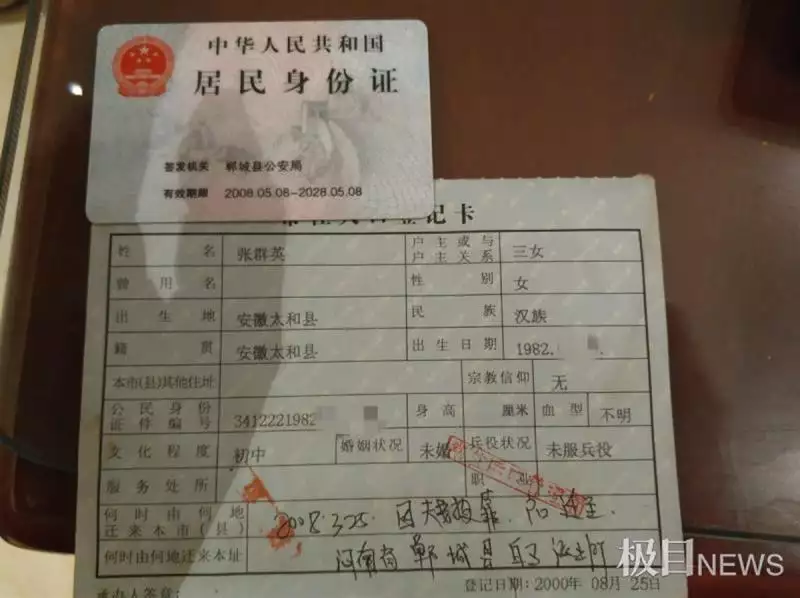 中华人民共和国
居民身份证
签发机关 郸城县公安局
有效期限 2008.05.08-2028.05.08
登记卡
姓名 张群英 户主或与户主关系 三女
曾用名 性别 女
出生地 安徽太和县 民族 汉族
籍贯 安徽太和县 出生日期 1982.
本市(县)其他住址 宗教信仰 无
公民身份证件编号 3412221982 身高 厘米 血型 不明
文化程度 初中 婚姻状况 未婚 兵役状况 未服兵役
服务处所 职业
何时由何地迁来本市(县) 2008.3.25. 因夫妻投靠
何时由何地迁来本址 河南省郸城县
承办人签章: 登记日期:2000年 08月 25日
极目NEWS